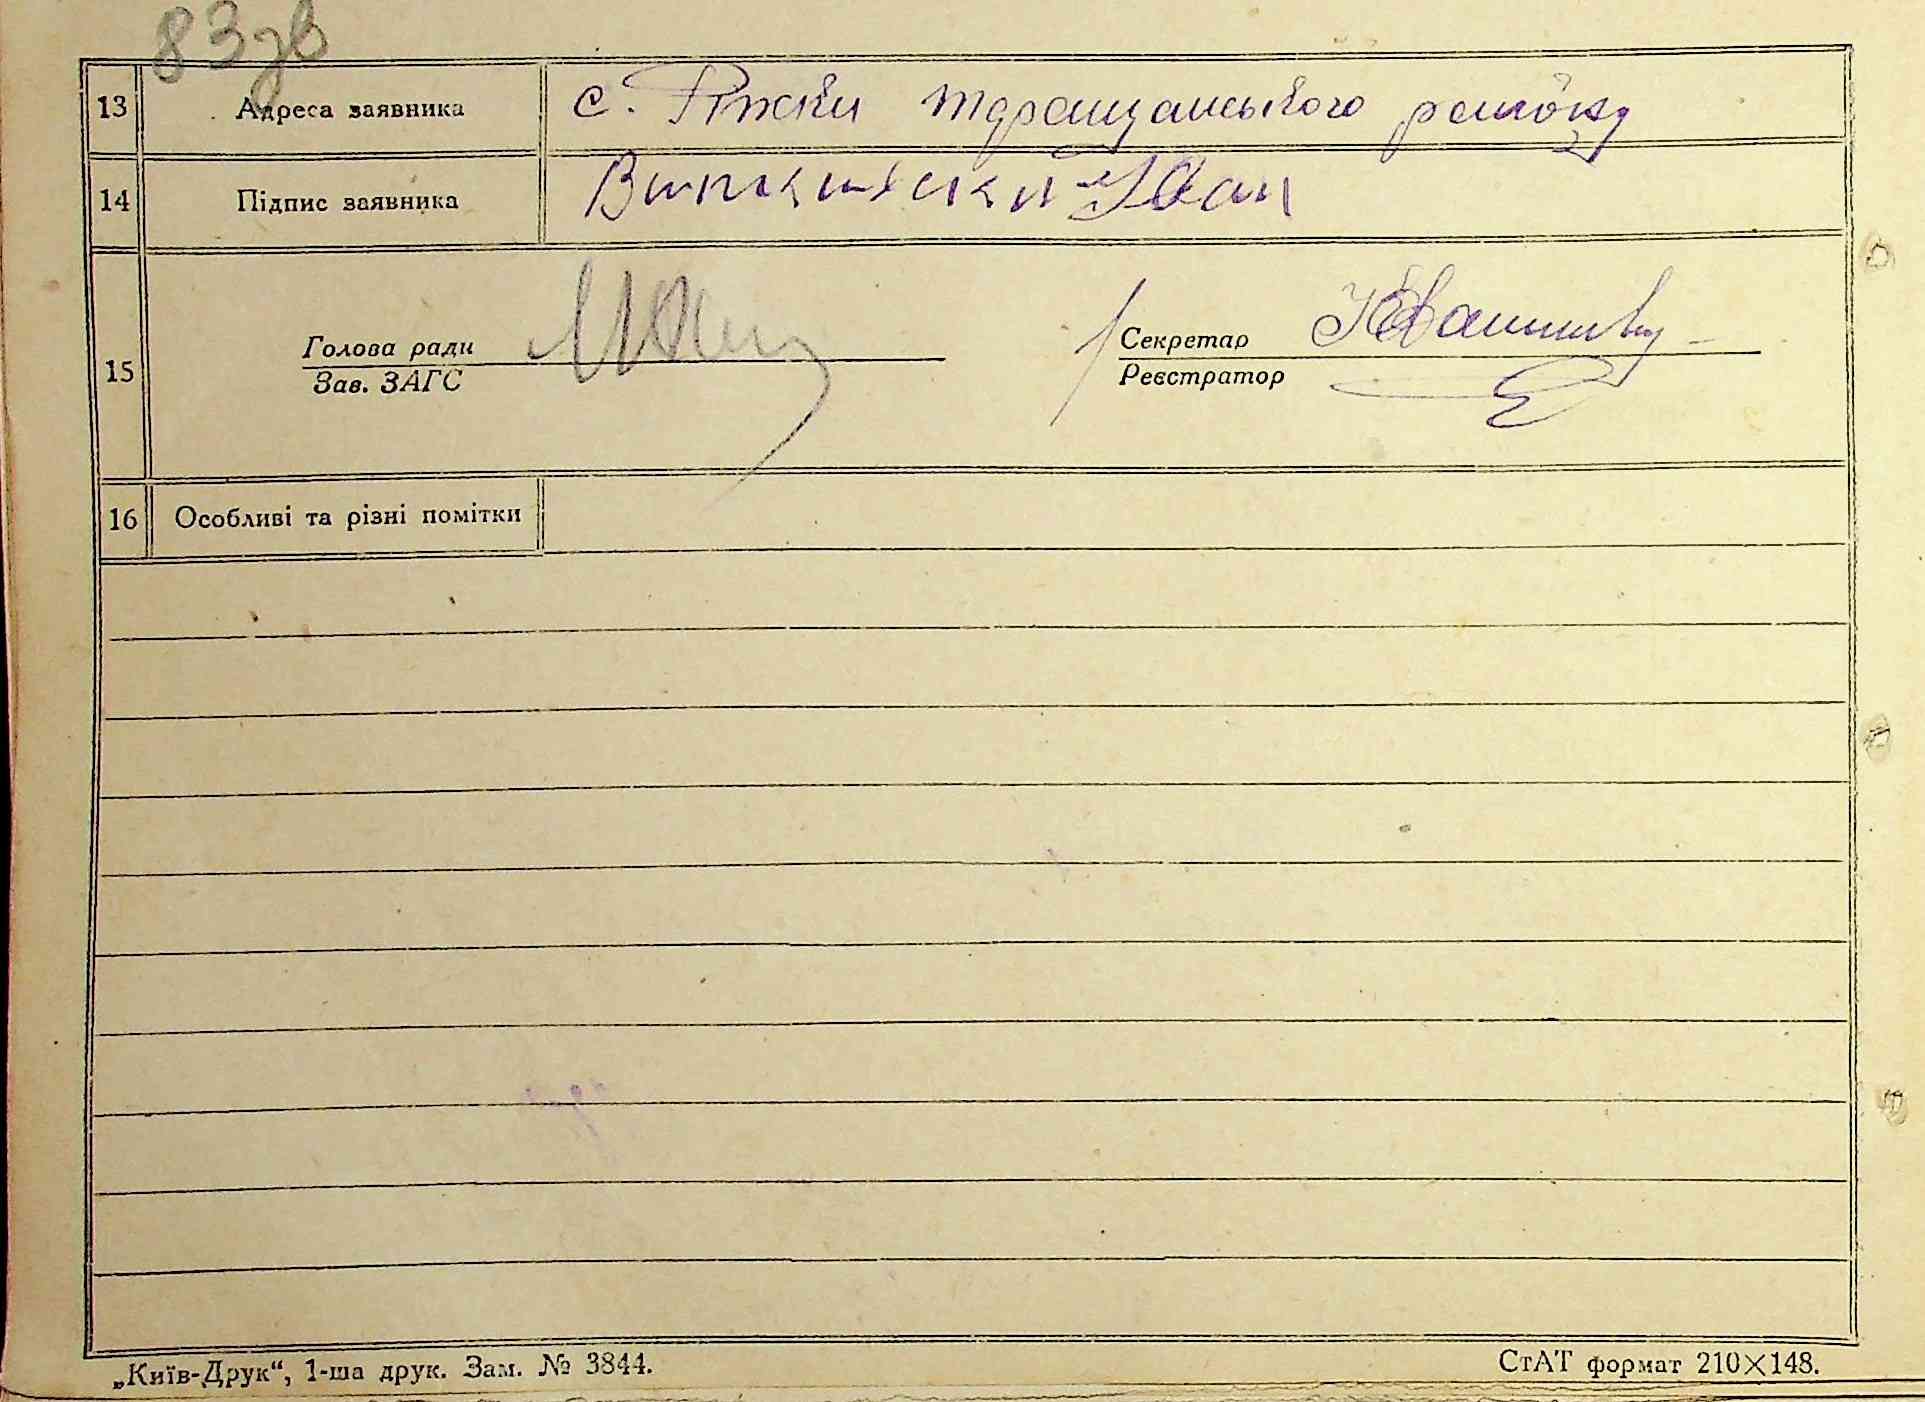 83зв
13 Адреса заявника с. Ріжки таращанського району
14 Підпис заявника Іван
Голова ради Секретар
15
Зав. ЗАГС Реєстратор
16 Особливі та різні помітки
„Київ-Друк“, 1-ша друк. Зам. № 3844. СтАТ формат 210×148.